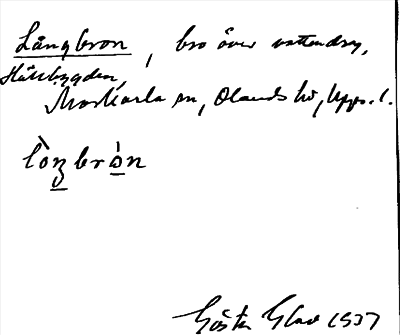 Långbron, bro över vattendrag,
Hållsbygden,
Morkarla sn, Olands hd, Upps. l.
lòŋbròn
Gösta Glav 1937